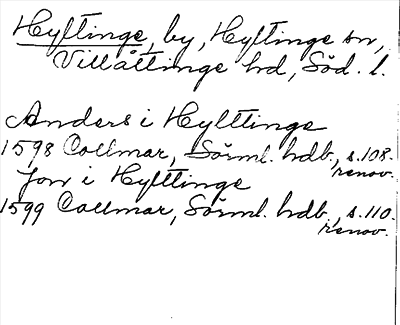 Hyltinge, by, Hyltinge sn,
Villåttinge hd, Söd. l.
Anders i Hylttinge
1598 Collmar, Sörml. hdb., s. 108.
renov.
Jon i Hylttinge
1599 Collmar, Sörml. hdb., s. 110.
renov.